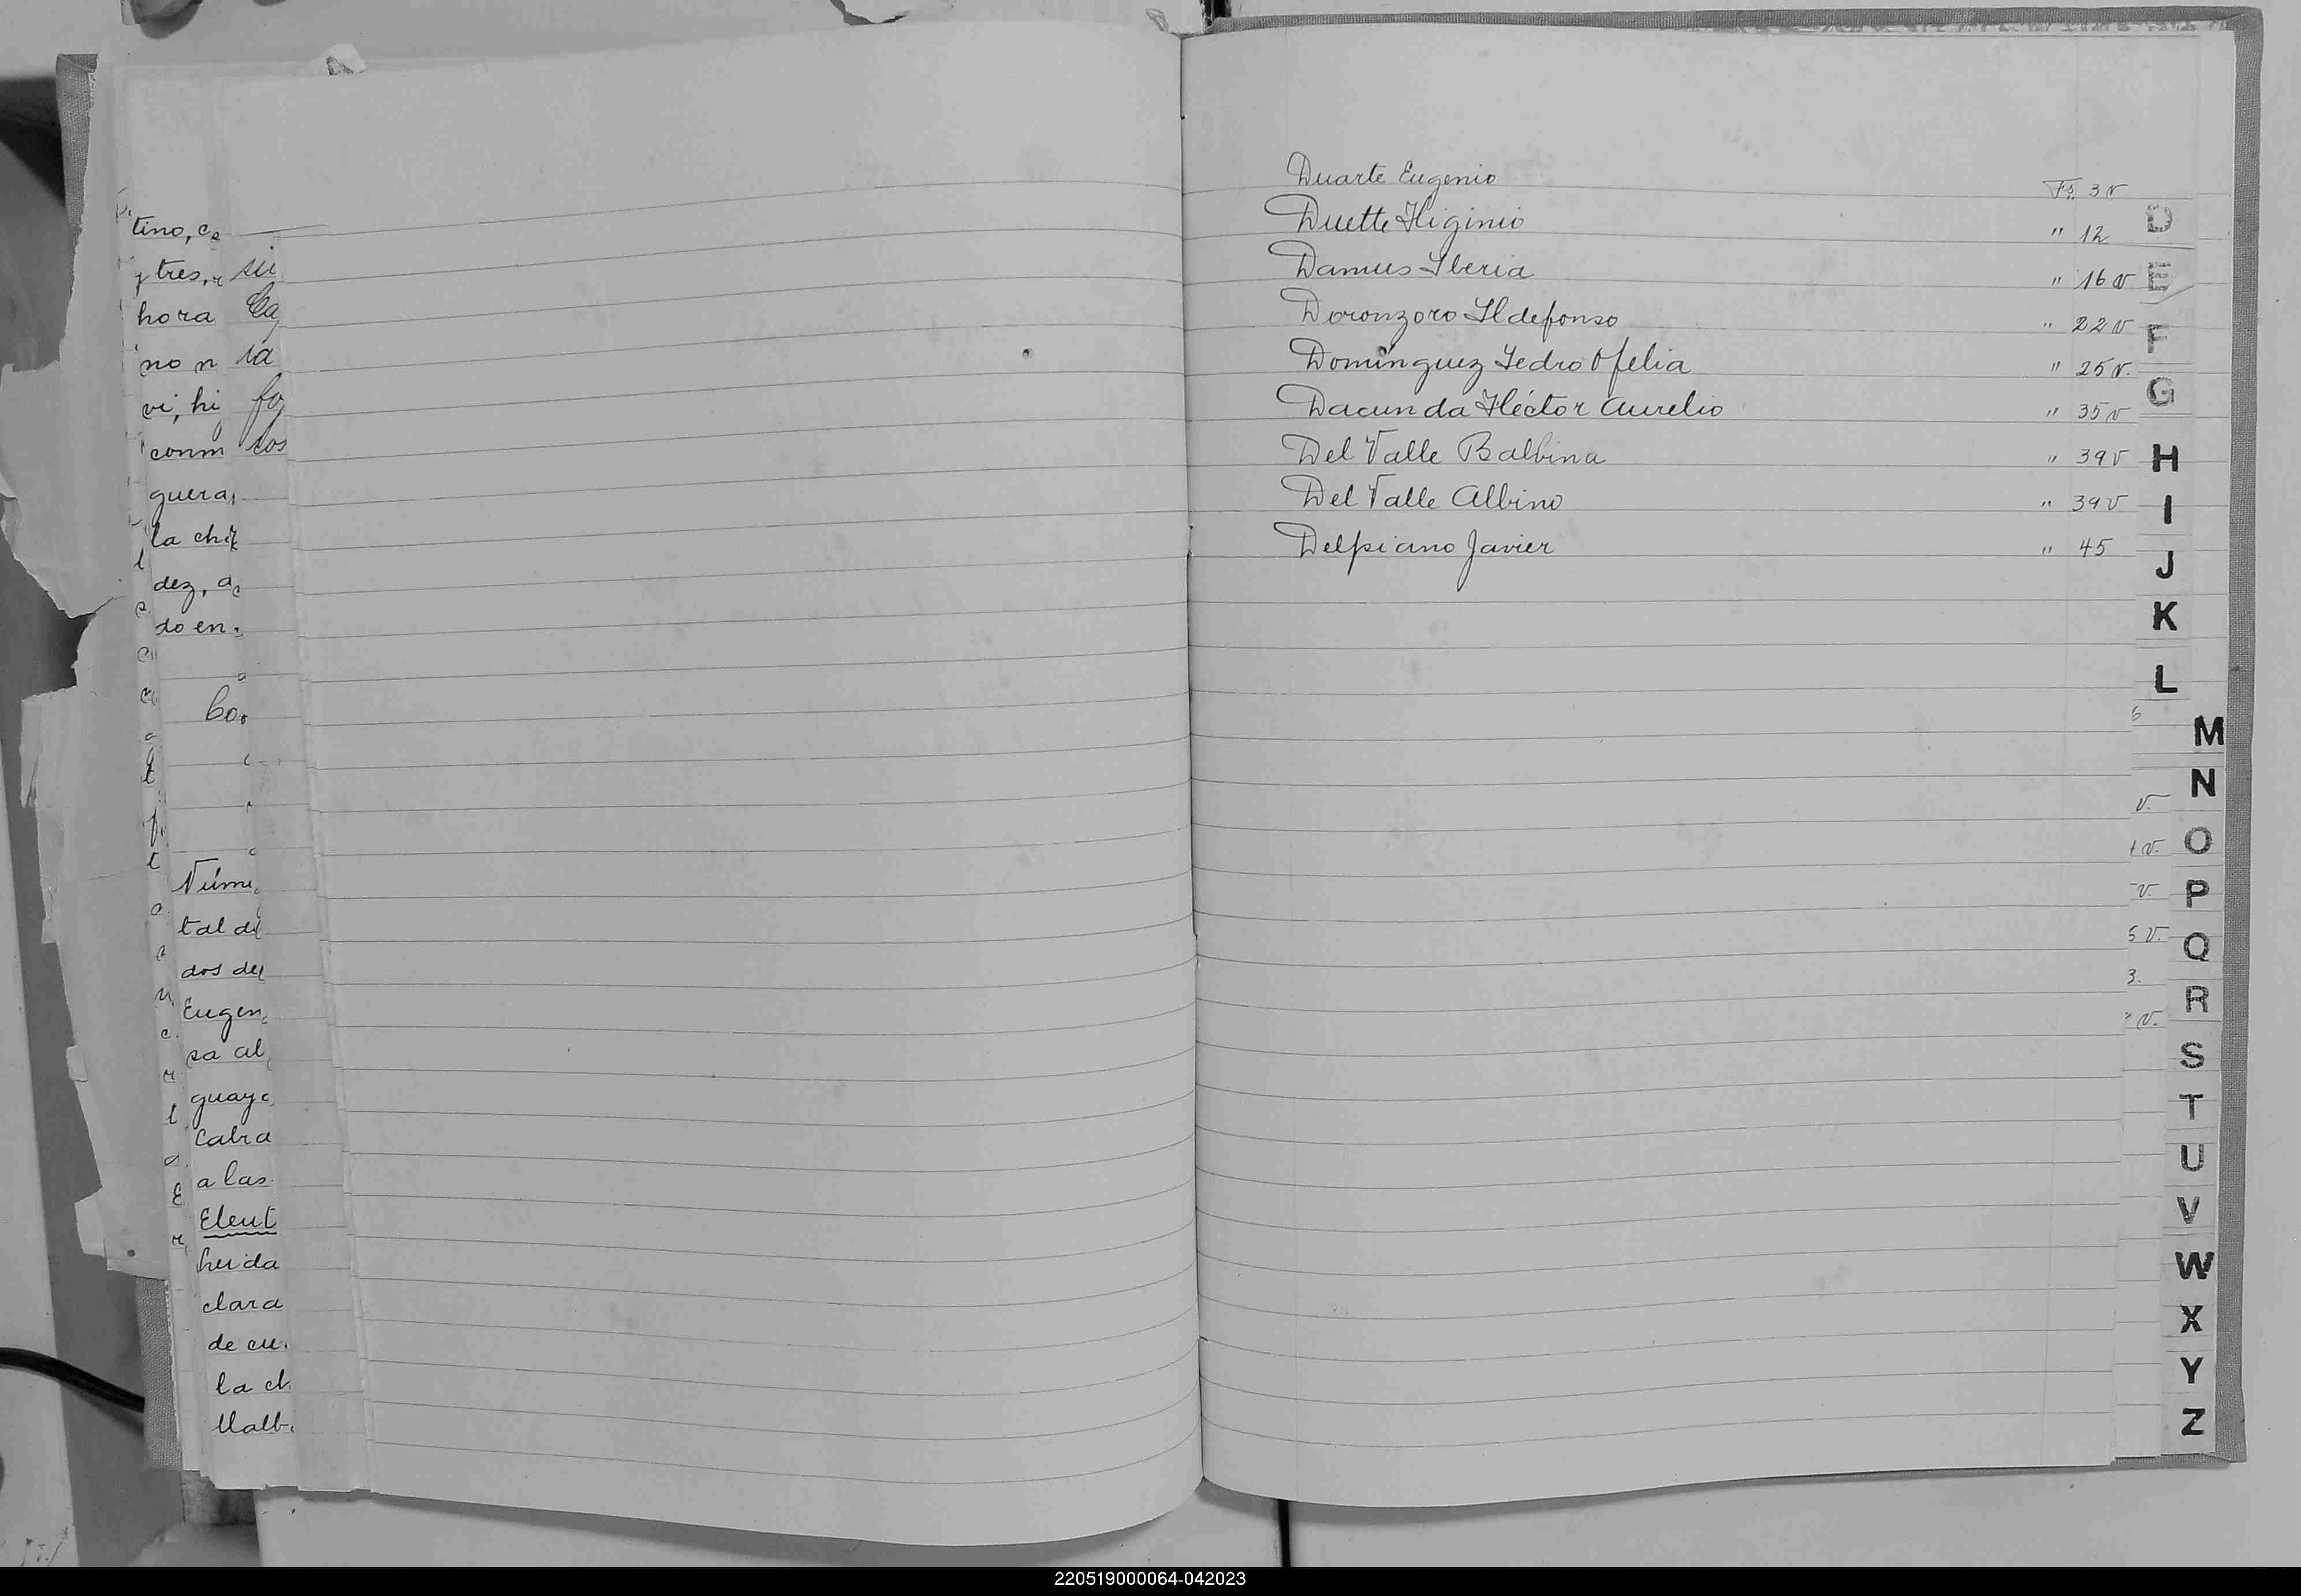 tino,
tres, sii
hora Ca
no n ta
vi, hi fo
conm tos
guera,
la chi
dez, a
do en
Co
Núme
tal de
dos de
Eugen
sa al
guayo
Cabra
a las
Eleut
cluida
clara
de cu
la ch
Malb
Duarte Eugenio Fs. 3v
Duette Higinio " 12
Damus Iberia " 16v
Doronzoro Ildefonso " 22v
Dominguez Pedro Ofelia " 25v.
Dacunda Héctor Aurelio " 35v
Del Valle Balbina " 39v
Del Valle Albino " 39v
Delpiano Javier " 45
D
E
F
G
H
I
J
K
L
6
M
N
v.
O
v.
P
v.
Q
5v.
R
3.
v.
S
T
U
V
W
X
Y
Z
220519000064-042023